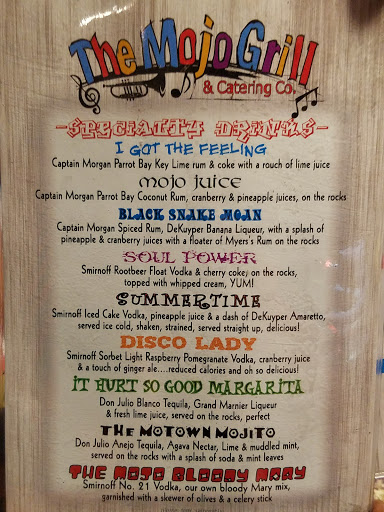 The Mojo Grill
& Catering Co.
-SPECIALTY DRINKS-
I GOT THE FEELING
Captain Morgan Parrot Bay Key Lime rum & coke with a rouch of lime juice
MOJO JUICE
Captain Morgan Parrot Bay Coconut Rum, cranberry & pineapple juices, on the rocks
BLACK SNAKE MOAN
Captain Morgan Spiced Rum, DeKuyper Banana Liqueur, with a splash of
pineapple & cranberry juices with a floater of Myers's Rum on the rocks
SOUL POWER
Smirnoff Rootbeer Float Vodka & cherry coke, on the rocks,
topped with whipped cream, YUM!
SUMMERTIME
Smirnoff Iced Cake Vodka, pineapple juice & a dash of DeKuyper Amaretto,
served ice cold, shaken, strained, served straight up, delicious!
DISCO LADY
Smirnoff Sorbet Light Raspberry Pomegranate Vodka, cranberry juice
& a touch of ginger ale....reduced calories and oh so delicious!
IT HURT SO GOOD MARGARITA
Don Julio Blanco Tequila, Grand Marnier Liqueur
& fresh lime juice, served on the rocks, perfect
THE MOTOWN MOJITO
Don Julio Anejo Tequila, Agava Nectar, Lime & muddled mint,
served on the rocks with a splash of soda & mint leaves
THE MOJO BLOODY MARY
Smirnoff No. 21 Vodka, our own bloody Mary mix,
garnished with a skewer of olives & a celery stick